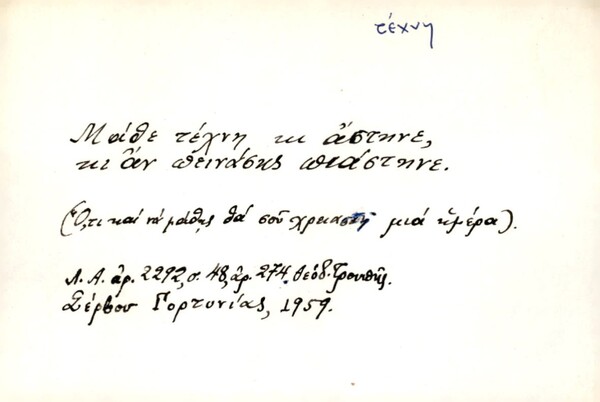 τέχνη
Μάθε τέχνη κι ἄστηνε,
κι ἂν πεινάσῃς πιάστηνε.
(Ὅ,τι καὶ νὰ μάθῃς θά σοῦ χρειαστῆ μιά ἡμέρα).
Λ. Α. ἀρ. 2292, σ. 48, ἀρ. 274. Θεόδ.
Σέρβου Γορτυνίας, 1959.